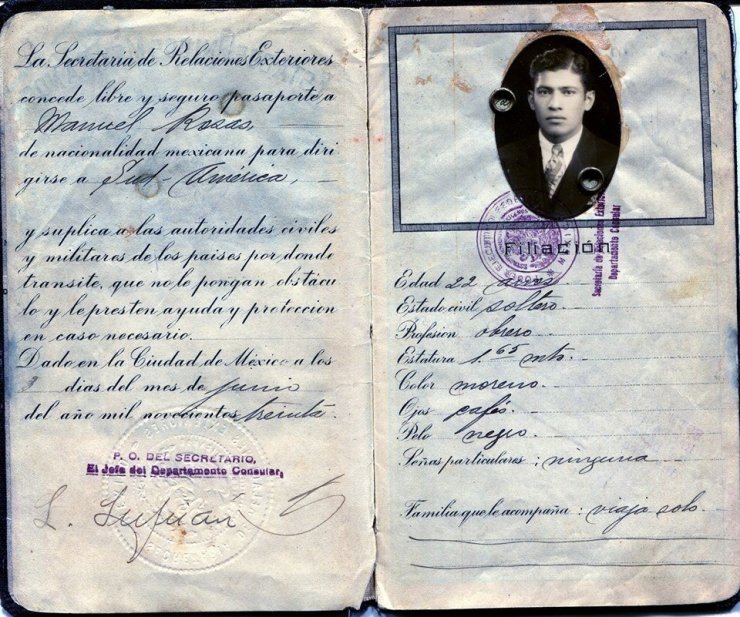 La Secretaría de Relaciones Exteriores
concede libre y seguro pasaporte a
Manuel Rosas,
de nacionalidad mexicana para diri
girse a Sud-America,
y suplica a las autoridades civiles
y militares de los paises por donde
transite, que no le pongan obstácu
lo y le presten ayuda y protección
en caso necesario.
Dado en la Ciudad de México a los
3 dias del mes de junio
del año mil novecientos treinta.
P. O. DEL SECRETARIO,
El Jefe del Departamento Consular,
Filiación
Secretaría de Relaciones Exteriores
Departamento Consular
Edad 22 años
Estado civil soltero.
Profesion obrero
Estatura 1.65 mts.
Color moreno.
Ojos cafés.
Pelo negro.
Señas particulares: ninguna
Familia que le acompaña: viaja solo.